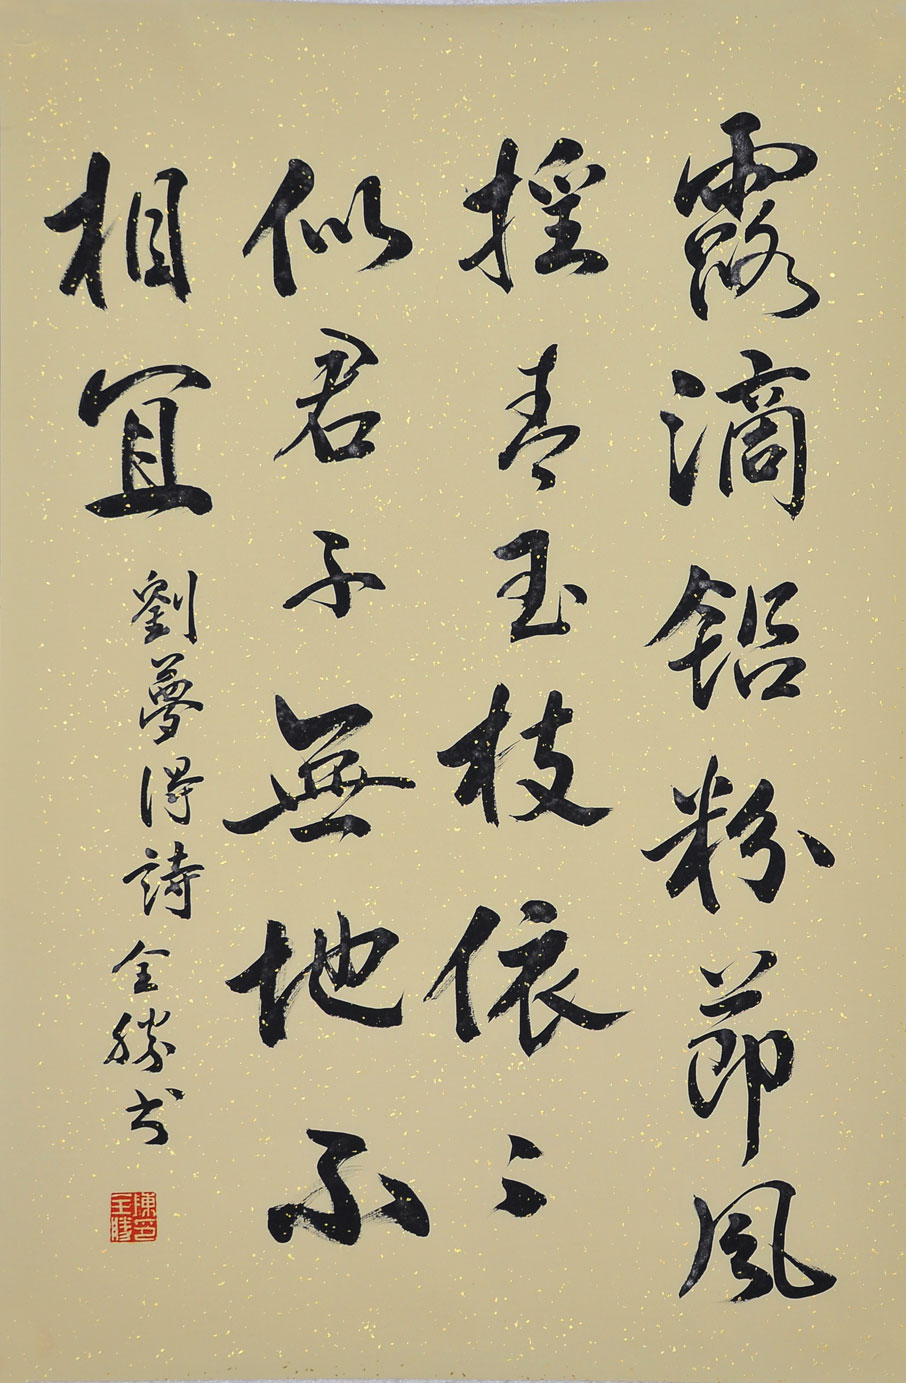 露滴鉛粉節風
搖青玉枝依〻
似君子無地不
相宜
劉夢得詩全勝书
陳全勝印